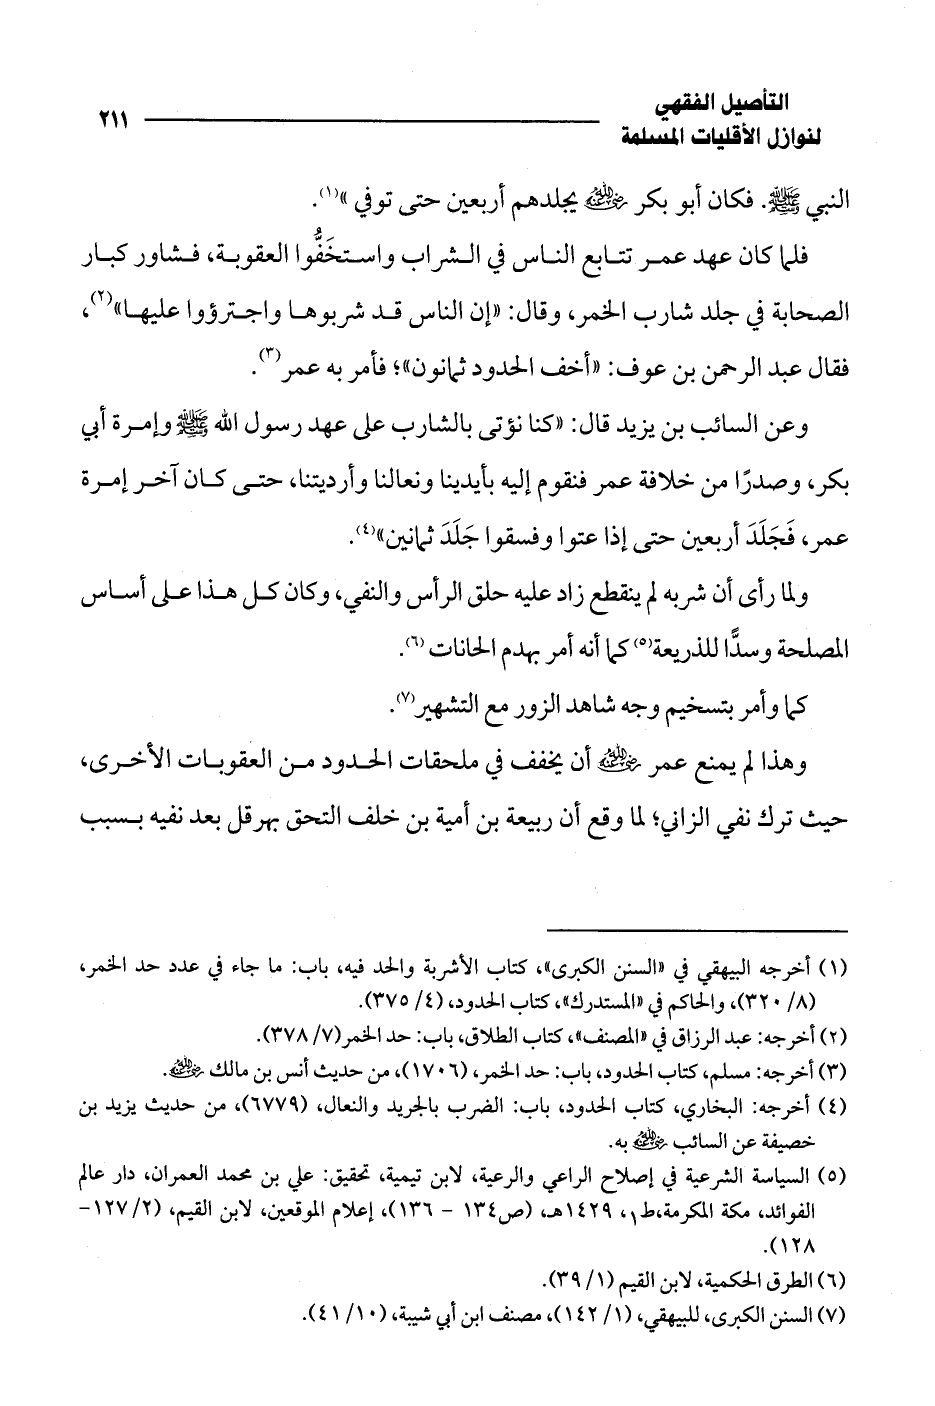 التأصيل الفقهي
لنوازل الأقليات المسلمة
٢١١
النبي ﷺ. فكان أبو بكر رضي الله عنه يجلدهم أربعين حتى توفي »(١).
فلما كان عهد عمر تتابع الناس في الشراب واستخَفُّوا العقوبة، فشاور كبار
الصحابة في جلد شارب الخمر، وقال: «إن الناس قد شربوها واجترؤوا عليها»(٢)،
فقال عبد الرحمن بن عوف: «أخف الحدود ثمانون»؛ فأمر به عمر(٣).
وعن السائب بن يزيد قال: «كنا نؤتى بالشارب على عهد رسول الله ﷺ وإمرة أبي
بكر، وصدرًا من خلافة عمر فنقوم إليه بأيدينا ونعالنا وأرديتنا، حتى كان آخر إمرة
عمر، فَجَلَدَ أربعين حتى إذا عتوا وفسقوا جَلَدَ ثمانين»(٤).
ولما رأى أن شربه لم ينقطع زاد عليه حلق الرأس والنفي، وكان كل هذا على أساس
المصلحة وسدًّا للذريعة(٥) كما أنه أمر بهدم الحانات (٦).
كما وأمر بتسخيم وجه شاهد الزور مع التشهير(٧).
وهذا لم يمنع عمر رضي الله عنه أن يخفف في ملحقات الحدود من العقوبات الأخرى،
حيث ترك نفي الزاني؛ لما وقع أن ربيعة بن أمية بن خلف التحق بهرقل بعد نفيه بسبب
(١) أخرجه البيهقي في «السنن الكبرى»، كتاب الأشربة والحد فيه، باب: ما جاء في عدد حد الخمر،
(٨/ ٣٢٠)، والحاكم في «المستدرك»، كتاب الحدود، (٤/ ٣٧٥).
(٢) أخرجه: عبد الرزاق في «المصنف»، كتاب الطلاق، باب: حد الخمر(٧/ ٣٧٨).
(٣) أخرجه: مسلم، كتاب الحدود، باب: حد الخمر، (١٧٠٦)، من حديث أنس بن مالك رضي الله عنه.
(٤) أخرجه: البخاري، كتاب الحدود، باب: الضرب بالجريد والنعال، (٦٧٧٩)، من حديث يزيد بن
خصيفة عن السائب رضي الله عنه به.
(٥) السياسة الشرعية في إصلاح الراعي والرعية، لابن تيمية، تحقيق: علي بن محمد العمران، دار عالم
الفوائد، مكة المكرمة،ط١، ١٤٢٩هـ، (ص١٣٤ - ١٣٦)، إعلام الموقعين، لابن القيم، (٢/ ١٢٧-
١٢٨).
(٦) الطرق الحكمية، لابن القيم (١/ ٣٩).
(٧) السنن الكبرى، للبيهقي، (١/ ١٤٢)، مصنف ابن أبي شيبة، (١٠/ ٤١).